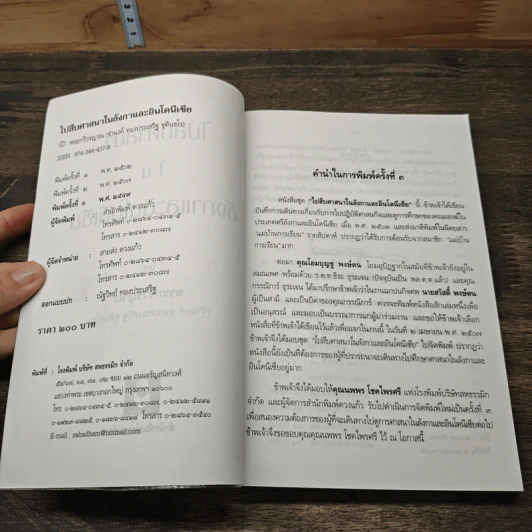 ไปสืบศาสนาในลังกาและอินโดนีเซีย
© พระกวีวรญาณ (จำนงค์ ทองประเสริฐ ชุตินฺธโร)
ISBN 974-344-437-8
พิมพ์ครั้งที่ ๑ พ.ศ. ๒๕๐๒
พิมพ์ครั้งที่ ๒ พ.ศ. ๒๕๐๗
พิมพ์ครั้งที่ ๓ พ.ศ. ๒๕๔๙
ผู้จัดพิมพ์ สำนักพิมพ์ ดวงแก้ว
โทรศัพท์ ๐-๒๘๖๔-๐๔๓๔-๕
โทรสาร ๐-๒๔๑๒-๓๐๘๗
ผู้จัดจำหน่าย : สายส่ง ดวงแก้ว
โทรศัพท์ ๐-๒๘๖๔-๐๔๓๔-๕
โทรสาร ๐-๒๔๑๒-๓๐๘๗
ออกแบบปก : ณัฐวิทย์ ทองประเสริฐ
ราคา ๒๐๐ บาท
พิมพ์ที่ : โรงพิมพ์ บริษัท สหธรรมิก จำกัด
๕๔/๖๗, ๖๘, ๗๑, ๗๒ ซอย ๑๒ ถนนจรัญสนิทวงศ์
แขวงท่าพระ เขตบางกอกใหญ่ กรุงเทพฯ ๑๐๖๐๐
โทร. ๐-๒๘๖๔-๐๔๓๔-๕, ๐-๒๔๑๒-๓๐๘๗, ๐-๒๔๑๒-๕๘๙๑
โทรสาร ๐-๒๘๖๔-๓๕๔๐
E-mail : sahadham@hotmail.com
คำนำในการพิมพ์ครั้งที่ ๓
หนังสือชุด "ไปสืบศาสนาในลังกาและอินโดนีเซีย" นี้ ข้าพเจ้าได้เขียน
บันทึกการเดินทางเกี่ยวกับการไปปฏิบัติศาสนกิจและดูการศึกษาของคณะสงฆ์ใน
ประเทศศรีลังกาและอินโดนีเซีย เมื่อ พ.ศ. ๒๕๐๒ และส่งมาตีพิมพ์ในนิตยสาร
"แม่บ้านการเรือน" รายสัปดาห์ ปรากฏว่าได้รับการต้อนรับจากสมาชิก "แม่บ้าน
การเรือน" มาก
ต่อมา คุณโยมบุญชู พงษ์ตน โยมอุปัฏฐากในสมัยที่ข้าพเจ้ายังอยู่ใน
สมณเพศ พร้อมด้วย ร.ต.ท.ธีระ ธุระเจน (ปัจจุบันเป็น พล.ต.ต.แล้ว) และคุณ
กรรณิการ์ ธุระเจน ได้มาปรึกษาข้าพเจ้าว่าในงานฌาปนกิจศพ นายสวัสดิ์ พงษ์ตน
ผู้เป็นสามี และเป็นบิดาของคุณกรรณิการ์ ควรจะพิมพ์หนังสือสักเล่มหนึ่งเพื่อ
เป็นอนุสรณ์ และมอบเป็นบรรณาการแก่ผู้มาร่วมงาน และขอให้ข้าพเจ้าเลือก
หนังสือที่ข้าพเจ้าได้เขียนไว้แล้วเพื่อแจกในงานนี้ ในวันที่ ๒ เมษายน พ.ศ. ๒๕๐๗
ข้าพเจ้าจึงได้มอบชุด "ไปสืบศาสนาในลังกาและอินโดนีเซีย" ไปจัดพิมพ์ ปรากฏว่า
หนังสือนี้ยังเป็นที่ต้องการของผู้ที่ปรารถนาจะเดินทางไปศึกษาศาสนาในลังกาและ
อินโดนีเซียอยู่มาก
ข้าพเจ้าจึงได้มอบให้คุณนพพร โชคไพรศรี แห่งโรงพิมพ์บริษัทสหธรรมิก
จำกัด และผู้จัดการสำนักพิมพ์ดวงแก้ว รับไปดำเนินการจัดพิมพ์ใหม่เป็นครั้งที่ ๓
เพื่อสนองความต้องการของผู้ที่จะเดินทางไปดูการศาสนาในลังกาและอินโดนีเซียต่อไป
ข้าพเจ้าจึงขอขอบคุณคุณนพพร โชคไพรศรี ไว้ ณ โอกาสนี้